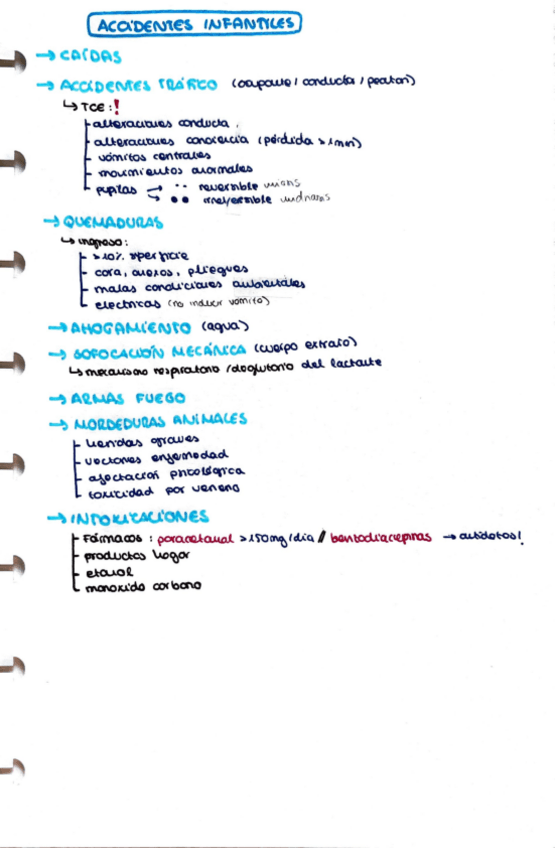 ACCIDENTES INFANTILES
→ CAÍDAS
→ ACCIDENTES TRÁFICO (ocupante / conducta / peatón)
↳ TCE:!
alteraciones conducta.
alteraciones conciencia (pérdida > 1min)
vómitos centrales
movimientos anormales
pupilas → •• reversible
→ •• irreversible
→ QUEMADURAS
↳ ingreso:
>10% superficie
cara, anexos, pliegues
malas condiciones ambientales
eléctricas (no inducir vómito)
→ AHOGAMIENTO (agua)
→ SOFOCACIÓN MECÁNICA (cuerpo extraño)
↳ mecanismo respiratorio / deglutorio del lactante
→ ARMAS FUEGO
→ MORDEDURAS ANIMALES
heridas graves
vectores enfermedad
afectación psicológica
toxicidad por veneno
→ INTOXICACIONES
Fármacos: paracetamol >150mg/día // benzodiacepinas → antídotos!
productos hogar
etanol
monóxido carbono